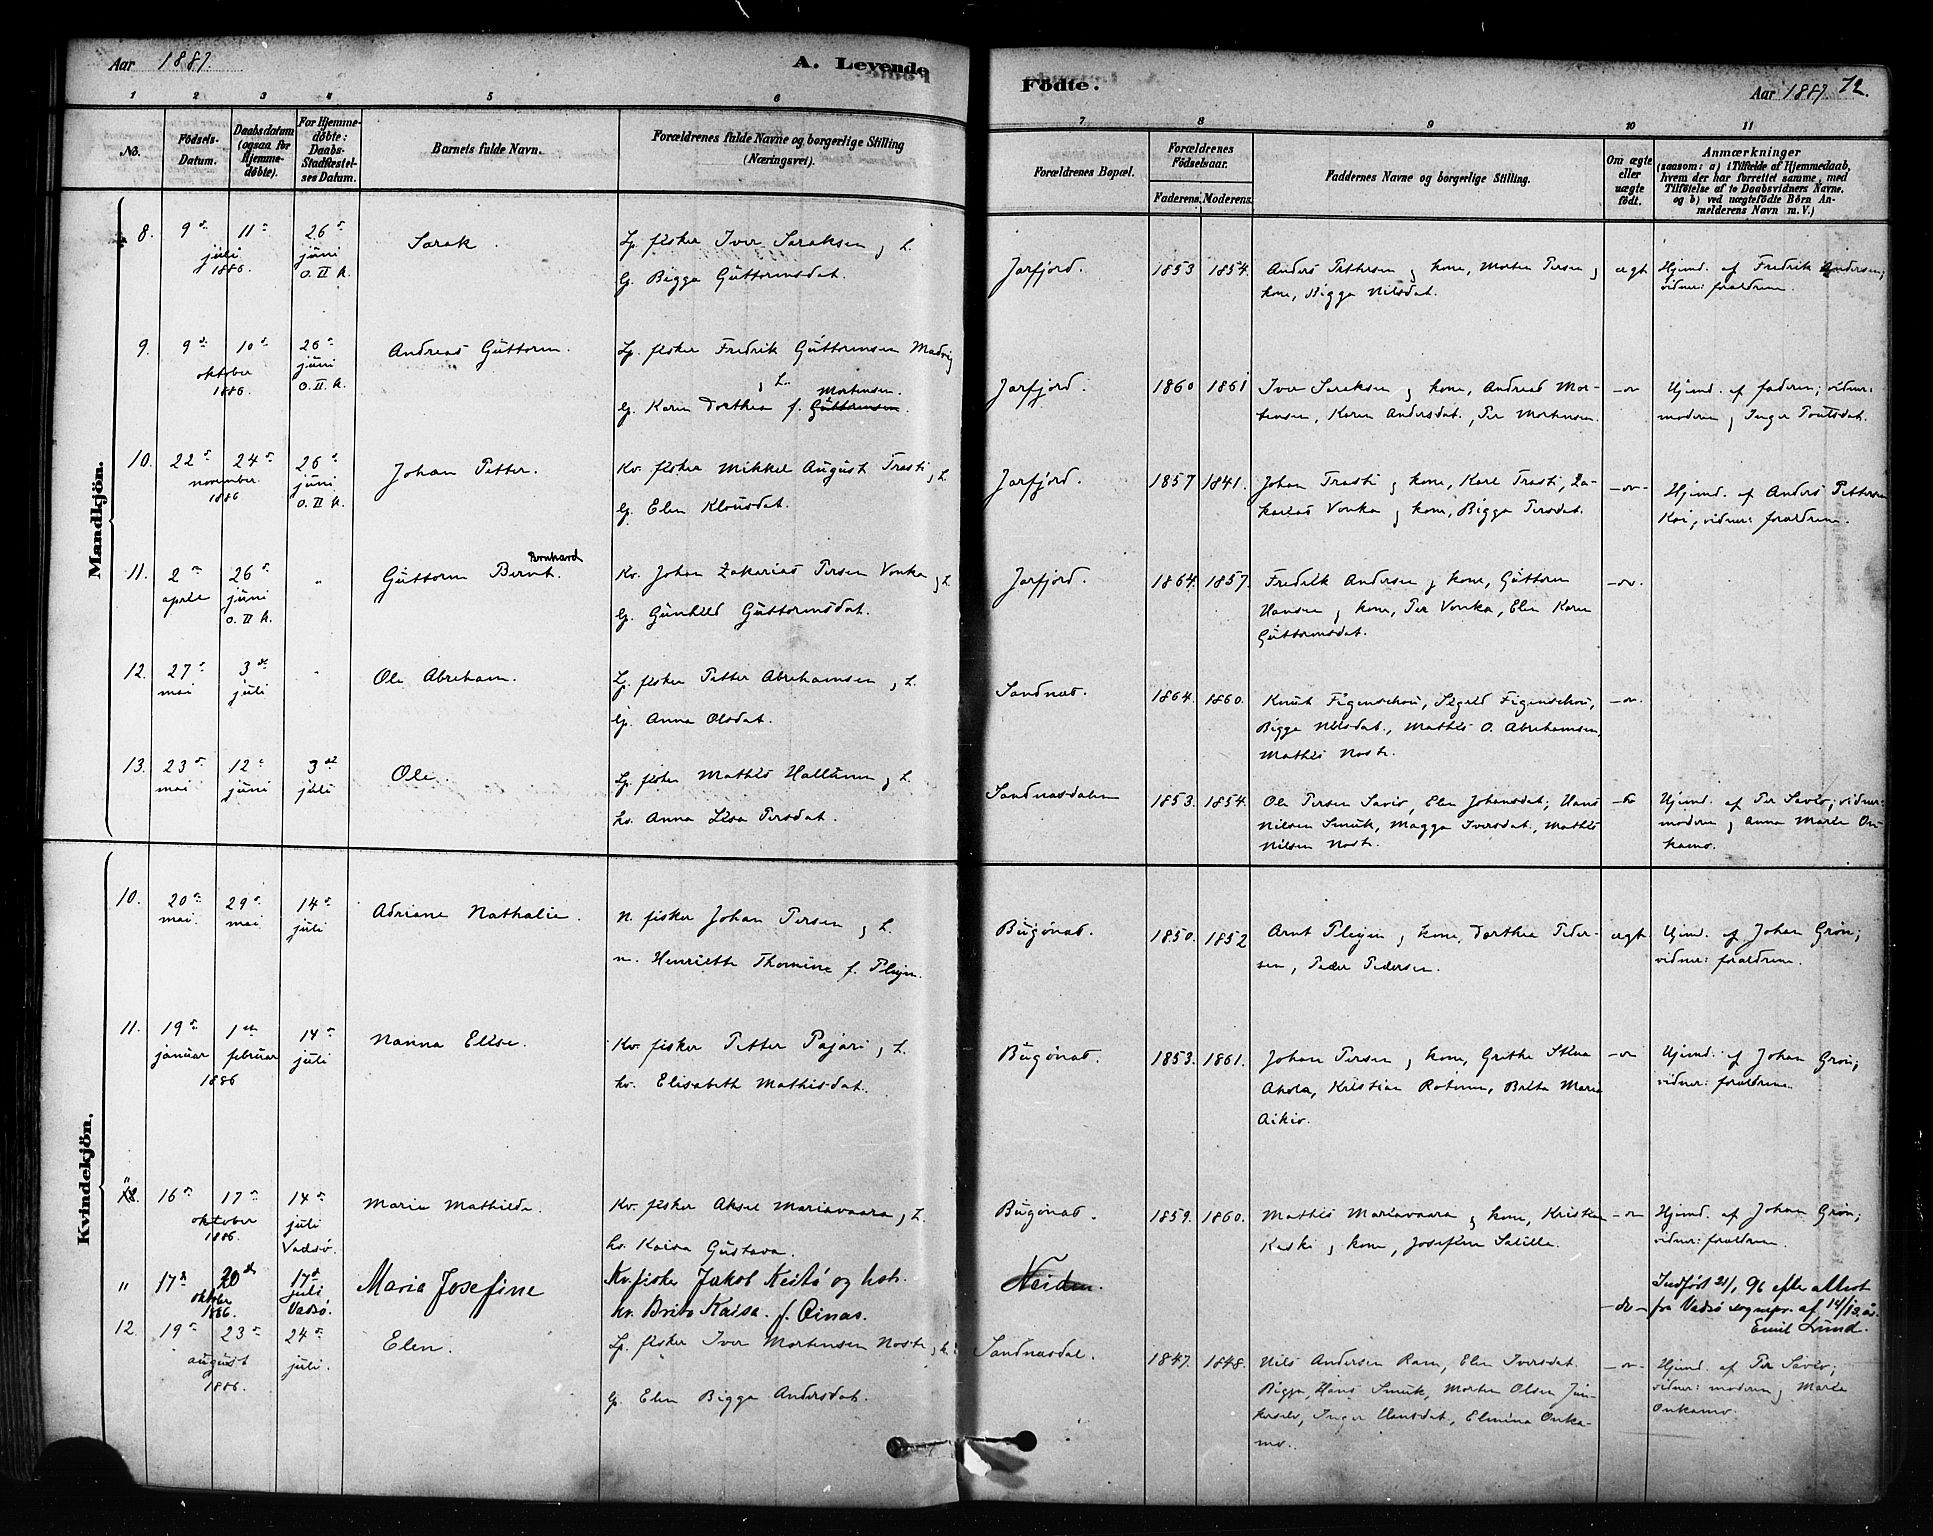 Aar 1887. A. Levende Födte. Aar 1887. 72.
1 2 3 4 5 6 7 8 9 10 11
No. Födsels-Datum. Daabsdatum (ogsaa for Hjemmedøbte). For Hjemmedøbte: Daabs-Stadfæstelses Datum. Barnets fulde Navn. Forældrenes fulde Navne og borgerlige Stilling (Næringsvei). Forældrenes Bopæl. Forældrenes Födselsaar. Faderens. Moderens. Faddernes Navne og borgerlige Stilling. Om ægte eller uægte født. Anmærkninger (saasom: a) i Tilfælde af Hjemmedaab, hvem der har forrettet samme, med Tilføielse af to Daabsvidners Navne. og b) ved uægtefödte Börn Anmelderens Navn m. V.)
Mandkjön.
8. 9 juli 1886. 11 26 juni O. II k. Sarak. Lp. fisker Iver Saraksen og h.
lp. Bigga Guttormsdat. Jarfjord. 1853 1854. Anders Pettersen og kone, Morten Persen og
kone, Bigga Nilsdat. ægt Hjmd. af Fredrik Andersen;
vidner: forældrene.
9. 9 10 oktober 1886. 26 juni O. II k. Andreas Guttorm. Lp. fisker Fredrik Guttormsen Madvig
og h. Mortensen.
lp. Karen Dorthea f. Guttormsen. Jarfjord. 1860 1861 Iver Sareksen og kone, Andreas Mor-
tensen, Karen Andersdat., Per Mortensen. -o- Hjmd. af faderen; vidner:
moderen og Inger Poulsdat.
10. 22 24 november 1886 26 juni O. II k. Johan Petter. Kv. fisker Mikkel August Trasti og h.
lp. Elen Klousdat. Jarfjord. 1857 1841. Johan Trasti og kone, Karl Trasti, Za-
karias Vonka og kone, Bigga Persdat. -o- Hjmd. af Anders Pettersen
Koi, vidner: forældrene.
11. 2 april 26 juni O. II k. " Guttorm Bernt. Bernhard Kv. Johan Zakarias Persen Vonka og h.
lp. Gunhild Guttormsdat. Jarfjord. 1864. 1857. Fredrik Andersen og kone, Guttorm
Hansen og kone, Per Vonka, Elen Karen
Guttormsdat. -o-
12. 27 mai 3 juli " Ole Abraham. Lp. fisker Petter Abrahamsen og h.
lp. Anna Olsdat. Sandnæs. 1864. 1860. Knut Figenschou, Sigrid Figenschou,
Bigga Nilsdat., Mathis O. Abrahamsen,
Mathis Noste. -o-
13. 23 mai 12 juni 3 juli Ole. Lp. fisker Mathis Hallonen og h.
kv. Anna Lisa Persdat. Sandnæsdalen 1853. 1854. Ole Persen Savio, Elen Johansdat., Hans
Nilsen Smuk, Magga Iversdat., Mathis
Nilsen Noste. -o- Hjmd. af Per Savio; vidner:
moderen og Anna Marie On-
kamo.
Kvindekjön.
10. 20 mai. 29 mai 14 juli Adriane Nathalie. N. fisker Johan Persen og h.
n. Henriette Thomine f. Pleym. Bugønæs. 1850. 1852 Arnt Pleym og kone, Dorthea Peder-
sen, Peder Pedersen. ægt Hjmd. af Johan Grøn;
vidner: forældrene.
11. 19 januar 1 februar 1886 14 juli Nanna Elise. Kv. fisker Petter Pajari og h.
kv. Elisabeth Mathisdat. Bugønæs. 1853. 1861. Johan Persen og kone, Grethe Stina
Ahola, Kristian Rotonen, Brita Maria
Aikio. -o- Hjmd. af Johan Grøn;
vidner: forældrene.
" 16 17 oktober 1886. 14 juli Vadsø. Marie Mathilde. Kv. fisker Aksel Mariavaara og h.
kv. Kaisa Gustava. Bugønæs. 1859. 1860. Mathis Mariavaara og kone, Kristian
Keski og kone, Josefine Salille. -o- Hjmd. af Johan Grøn;
vidner: forældrene.
" 17 20 oktober 1886. 17 juli Vadsø. Maria Josefine Kv. fisker Jakob Keitö og hstr.
kv. Brita Kaisa f. Oinas. Neiden. -do- Indført 21/1 96 efter attest
fra Vadsø sognepr. af 14/12 95.
Emil Lund.
12. 19 23 august 1886. 24 juli. Elen. Lp. fisker Iver Mortensen Noste og h.
lp. Elen Bigga Andersdat. Sandnæsdal. 1847. 1848. Nils Andersen Ram, Elen Iversdat.
Bigga, Hans Smuk, Morten Olsen Jun-
kerelv, Inger Hansdat, Elmina Onka-
mo. -o- Hjmd. af Per Savio;
vidner: moderen og Maria
Onkamo.